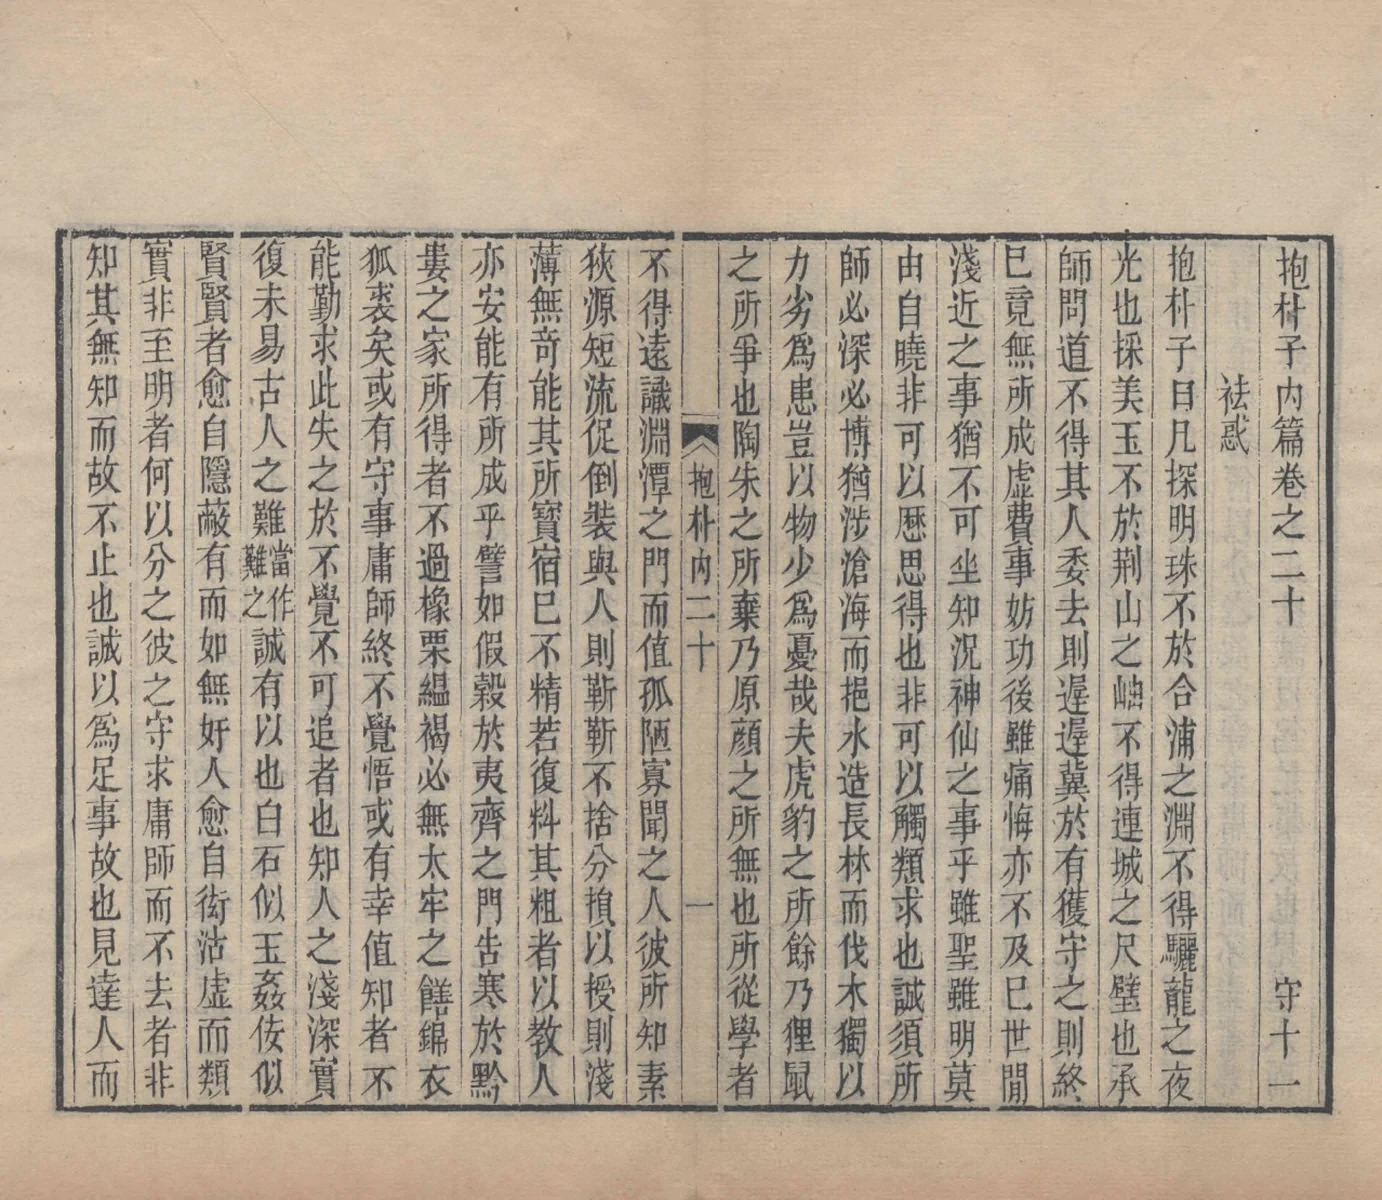 抱朴子内篇卷之二十 守十一
袪惑
抱朴子曰凡探明珠不於合浦之淵不得驪龍之夜
光也採美玉不於荆山之岫不得連城之尺璧也承
師問道不得其人委去則遲遲冀於有獲守之則終
巳竟無所成虚費事妨功後雖痛悔亦不及巳世間
淺近之事猶不可坐知況神仙之事乎雖聖雖明莫
由自曉非可以厯思得也非可以觸類求也誠須所
師必深必博猶涉滄海而挹水造長林而伐木獨以
力劣爲患豈以物少爲憂哉夫虎豹之所餘乃狸鼠
之所爭也陶朱之所棄乃原顔之所無也所從學者
抱朴内二十 一
不得遠識淵潭之門而值孤陋寡聞之人彼所知素
狹源短流促倒裝與人則靳靳不捨分損以授則淺
薄無竒能其所寶宿巳不精若復料其粗者以教人
亦安能有所成乎譬如假穀於夷齊之門告寒於黔
婁之家所得者不過橡栗緼褐必無太牢之饍錦衣
狐裘矣或有守事庸師終不覺悟或有幸值知者不
能勤求此失之於不覺不可追者也知人之淺深實
復未易古人之難當作難之誠有以也白石似玉姦佞似
賢賢者愈自隱蔽有而如無奸人愈自衒沽虚而類
實非至明者何以分之彼之守求庸師而不去者非
知其無知而故不止也誠以爲足事故也見達人而